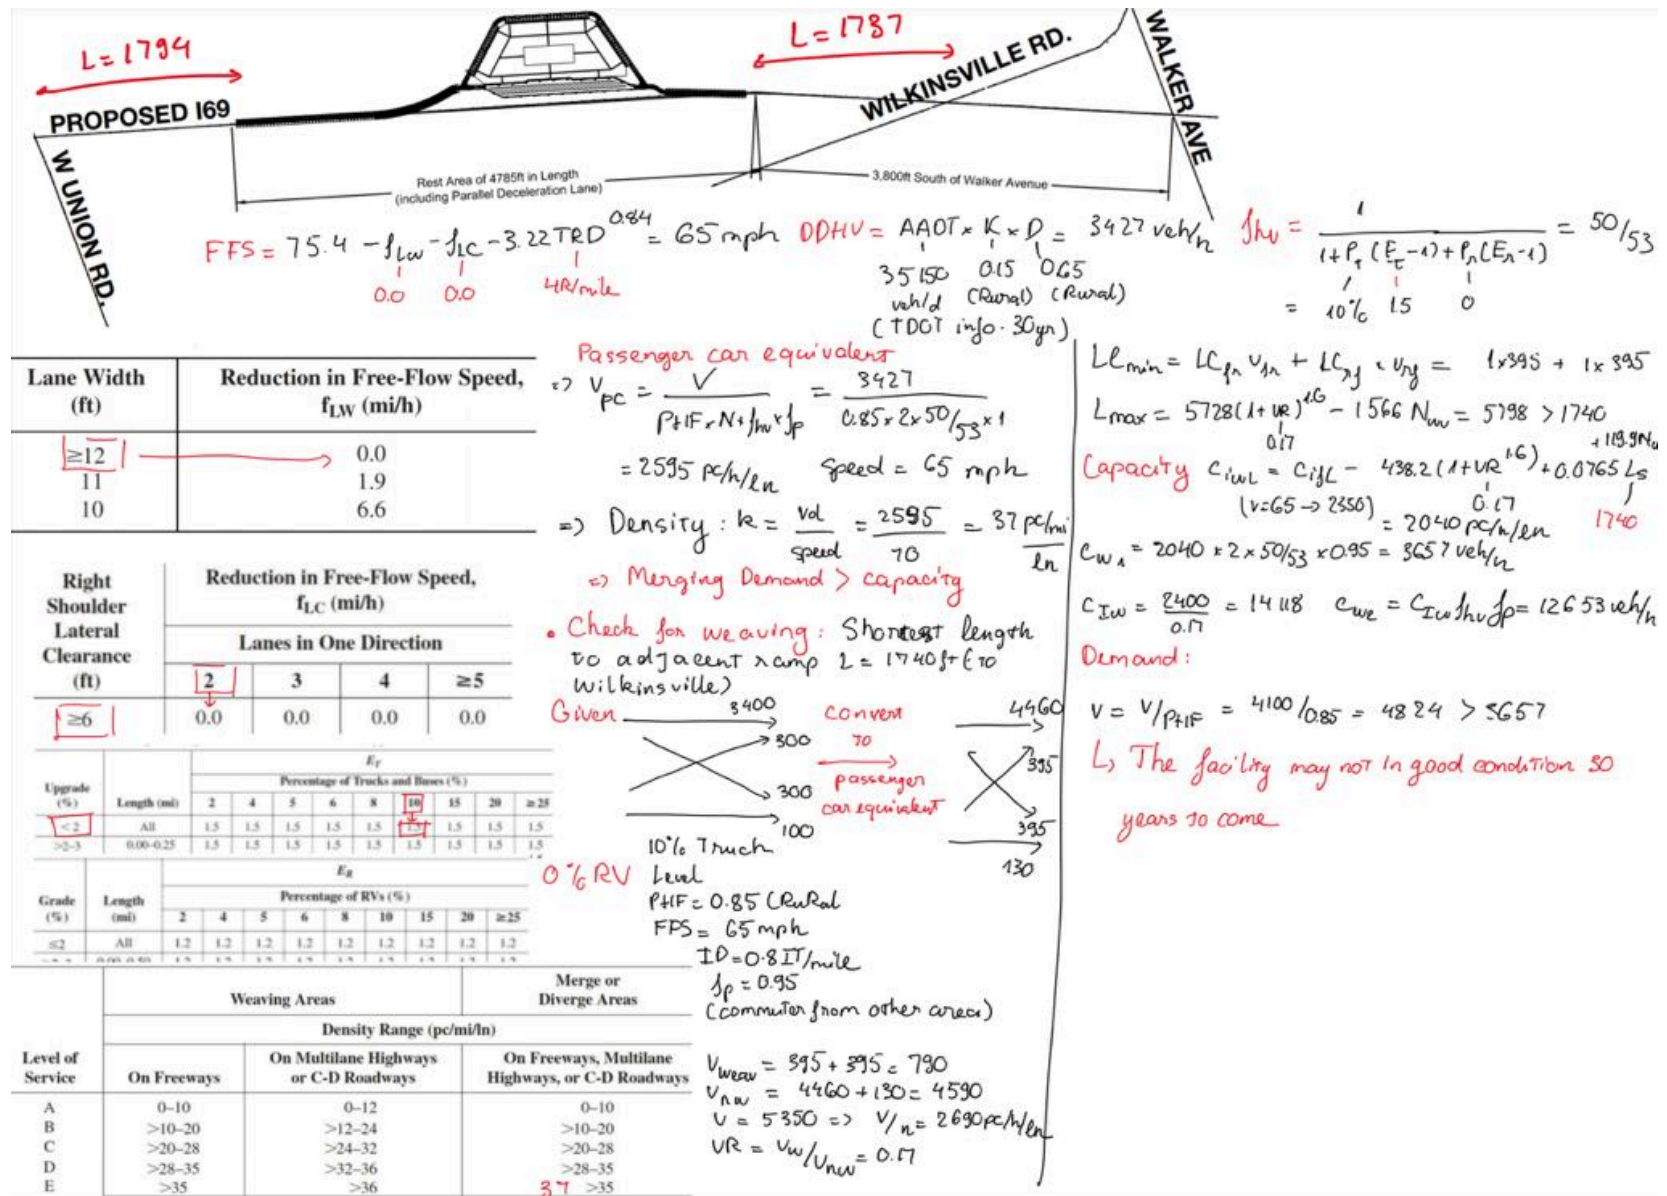 L = 1794
L = 1737
PROPOSED I69
WILKINSVILLE RD.
WALKER AVE
W UNION RD.
Rest Area of 4785ft in Length
(including Parallel Deceleration Lane)
3,800ft South of Walker Avenue
FFS = 75.4 - fLW - fLC - 3.22 TRD^0.84 = 65 mph
0.0 0.0 4R/mile
DDHV = AADT × K × D = 3427 veh/h
35150 0.15 0.65
veh/d (Rural) (Rural)
(TDOT info. 30yr)
fhv = 1 / 1+PT(ET-1)+PR(ER-1) = 50/53
= 10% 1.5 0
Lane Width (ft) Reduction in Free-Flow Speed, fLW (mi/h)
≥12 0.0
11 1.9
10 6.6
Right Shoulder Lateral Clearance (ft) Reduction in Free-Flow Speed, fLC (mi/h)
Lanes in One Direction
2 3 4 ≥5
≥6 0.0 0.0 0.0 0.0
ET
Percentage of Trucks and Buses (%)
Upgrade (%) Length (mi) 2 4 5 6 8 10 15 20 ≥25
<2 All 1.5 1.5 1.5 1.5 1.5 1.5 1.5 1.5 1.5
>2-3 0.00-0.25 1.5 1.5 1.5 1.5 1.5 1.5 1.5 1.5 1.5
ER
Percentage of RVs (%)
Grade (%) Length (mi) 2 4 5 6 8 10 15 20 ≥25
≤2 All 1.2 1.2 1.2 1.2 1.2 1.2 1.2 1.2 1.2
Weaving Areas Merge or Diverge Areas
Density Range (pc/mi/ln)
Level of Service On Freeways On Multilane Highways or C-D Roadways On Freeways, Multilane Highways, or C-D Roadways
A 0–10 0–12 0–10
B >10–20 >12–24 >10–20
C >20–28 >24–32 >20–28
D >28–35 >32–36 >28–35
E >35 >36 37 >35
Passenger car equivalent
=> Vpc = V / PHF × N × fhv × fp = 3427 / 0.85 × 2 × 50/53 × 1
= 2595 pc/h/ln speed = 65 mph
=> Density : k = vol / speed = 2595 / 70 = 37 pc/mi/ln
=> Merging Demand > capacity
• Check for weaving: Shortest length
to adjacent ramp L = 1740 ft (to
Wilkinsville)
Given 3400 convert 4460
300 to 395
300 passenger
100 car equivalent 395
130
10% Truck
0% RV Level
PHF = 0.85 (Rural
FFS = 65 mph
ID = 0.8 IT/mile
fp = 0.95
(commuter from other area)
Vweav = 395 + 395 = 790
Vnw = 4460 + 130 = 4590
V = 5350 => V/n = 2690 pc/h/ln
VR = Vw/Vnw = 0.17
LCmin = LCfr Vfr + LCrf × Vrf = 1×395 + 1×395
Lmax = 5728(1+VR)^1.6 - 1566 Nwv = 5798 > 1740
0.17
Capacity CiwL = CifL - 438.2(1+VR^1.6) + 0.0765 Ls + 119.9Nw
(v=65 → 2350) 0.17 1740
= 2040 pc/h/ln
Cw1 = 2040 × 2 × 50/53 × 0.95 = 3657 veh/h
CIw = 2400 / 0.17 = 14118 Cwe = CIw fhv fp = 12653 veh/h
Demand :
V = V/PHF = 4100/0.85 = 4824 > 3657
↳ The facility may not in good condition 30
years to come